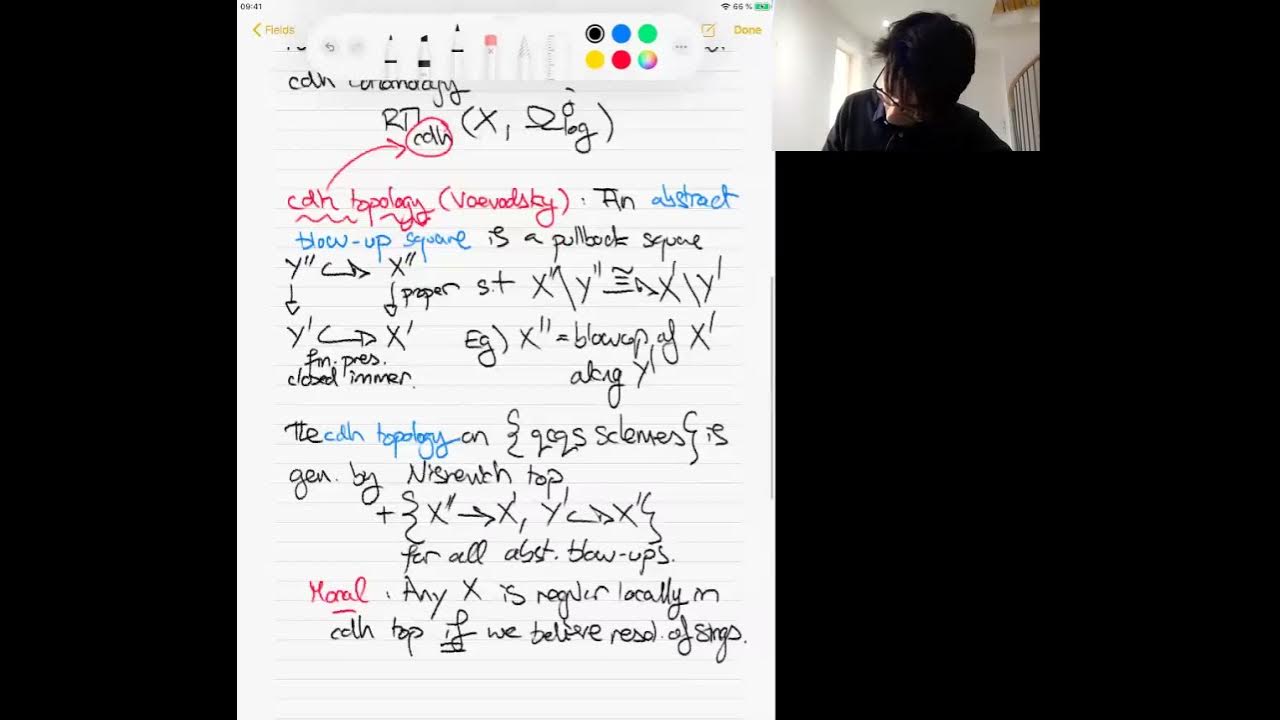 09:41
66 %
Fields
Done
cdh cohomology
RΓ_cdh (X, Ω^j_log)
cdh topology (Voevodsky) : An abstract
blow-up square is a pullback square
Y'' ↪ X''
↓ ↓ proper s.t X''\Y'' ≅→ X'\Y'
Y' ↪ X' Eg) X'' = blowup of X'
fin. pres. along Y'
closed immer.
The cdh topology on {qcqs schemes} is
gen. by Nisnevich top
+ {X'' → X', Y' ↪ X'}
for all abst. blow-ups.
Moral : Any X is regular locally in
cdh top if we believe resol. of sings.